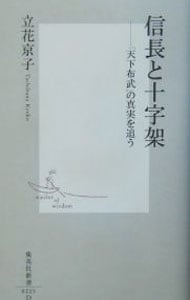 信長と十字架
——「天下布武」の真実を追う
立花京子
Tachibana Kyoko
master of wisdom
集英社新書
0225